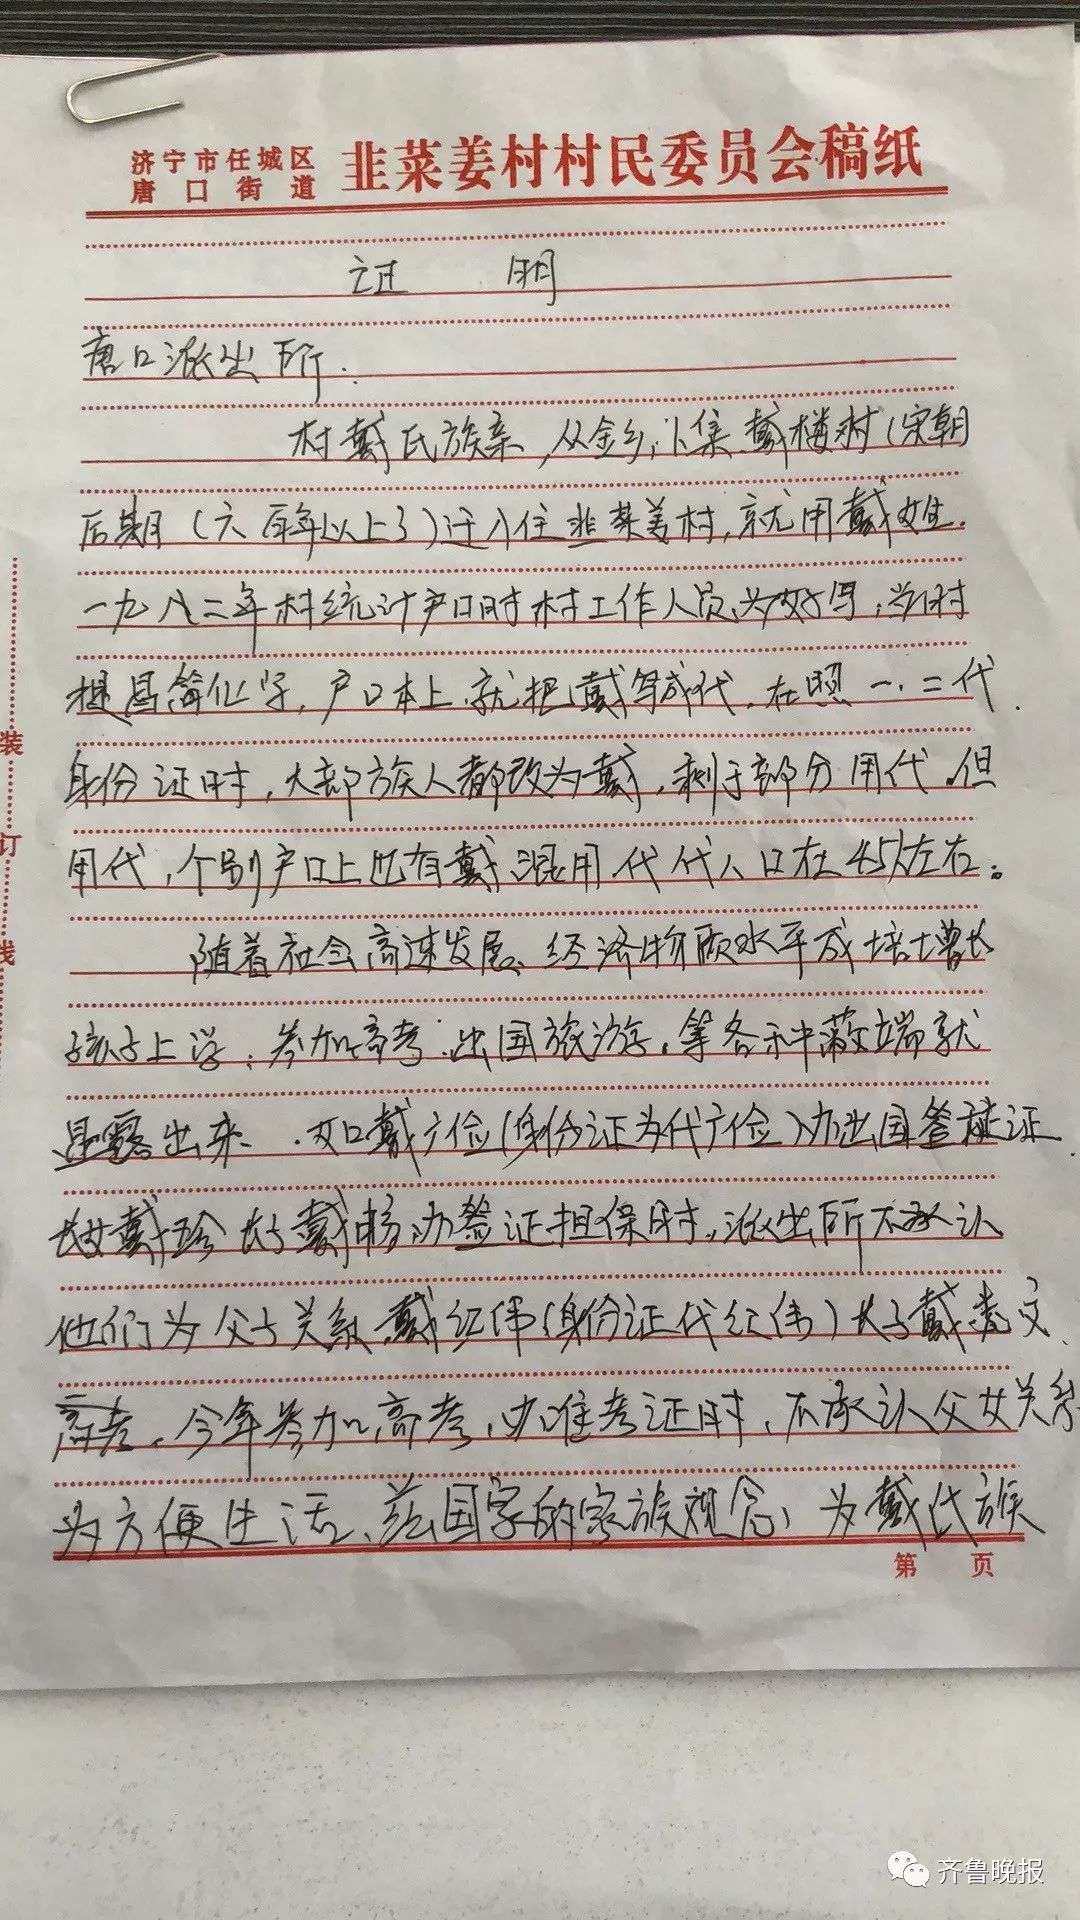 济宁市任城区
唐口街道
韭菜姜村村民委员会稿纸
证 明
唐口派出所:
村戴氏族亲,从金乡,卜集.戴楼村(宋朝
后期(六百年以上了)迁入住韭菜姜村,就用戴姓.
一九八二年村统计户口时村工作人员为好写,当时
提昌简化字,户口本上.就把戴写成代.在照一.二代.
身份证时,大部族人都改为戴,剩于部分用代.但
用代,个别户口上也有戴.混用.代代人口在45人左右。
随着社会高速发展、经济物质水平成培增长
孩子上学.参加高考.出国旅游.等各种蔽端就
显露出来..如戴广俭(身份证为代广俭)办出国签证
长女戴珍长子戴 办签证担保时,派出所不承认
他们为父子关系.戴红伟(身份证代红伟)长子戴 文
高考.今年参加高考,办准考证时,不承认父女关系
为方便生活、 国家的家族观念,为戴氏族
第 页
装
订
线
齐鲁晚报